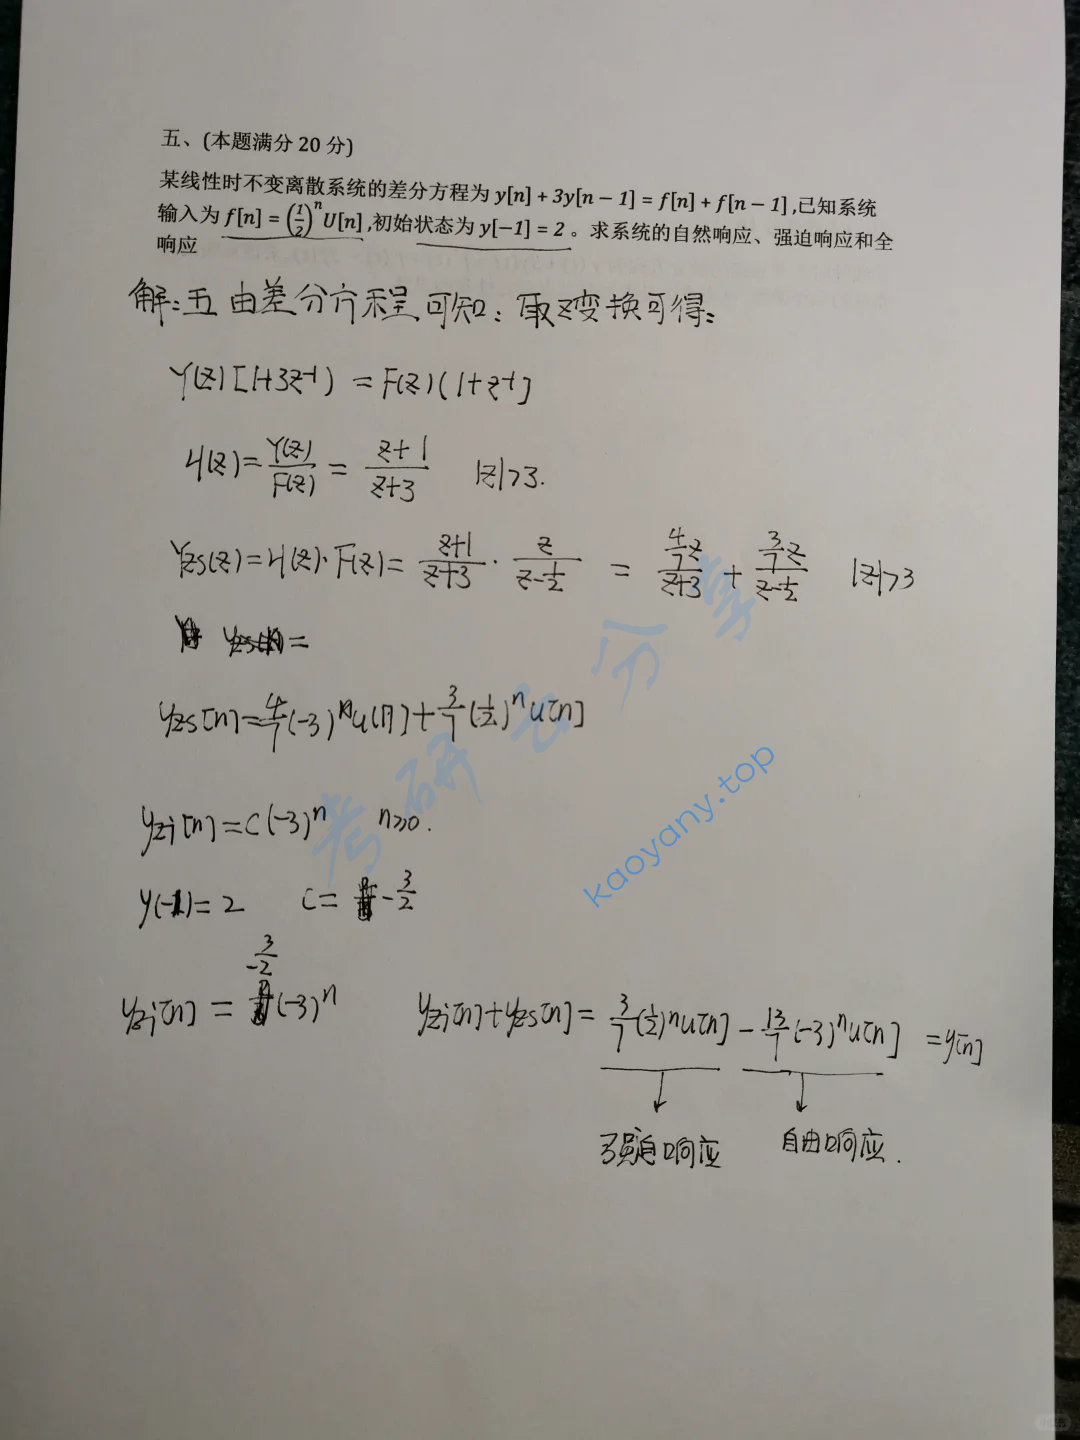 五、(本题满分 20 分)
某线性时不变离散系统的差分方程为 y[n] + 3y[n − 1] = f[n] + f[n − 1] ,已知系统
输入为 f[n] = (1/2)^n U[n] ,初始状态为 y[−1] = 2 。求系统的自然响应、强迫响应和全
响应
解: 五 由差分方程可知: 取z变换可得:
Y(z) [1+3z^-1) = F(z) (1+z^-1]
H(z) = Y(z)/F(z) = z+1/z+3 |z|>3.
Yzs(z) = H(z)·F(z) = z+1/z+3 · z/z-1/2 = 4/7z/z+3 + 3/7z/z-1/2 |z|>3
=
yzs[n] = 4/7(-3)^n u[n] + 3/7(1/2)^n u[n]
yzi[n] = C(-3)^n n≥0.
y(-1) = 2 C = -3/2
yzi[n] = -3/2(-3)^n yzi[n]+yzs[n] = 3/7(1/2)^n u[n] - 13/7(-3)^n u[n] = y[n]
响应 自由响应.
考研云分享
kaoyany.top